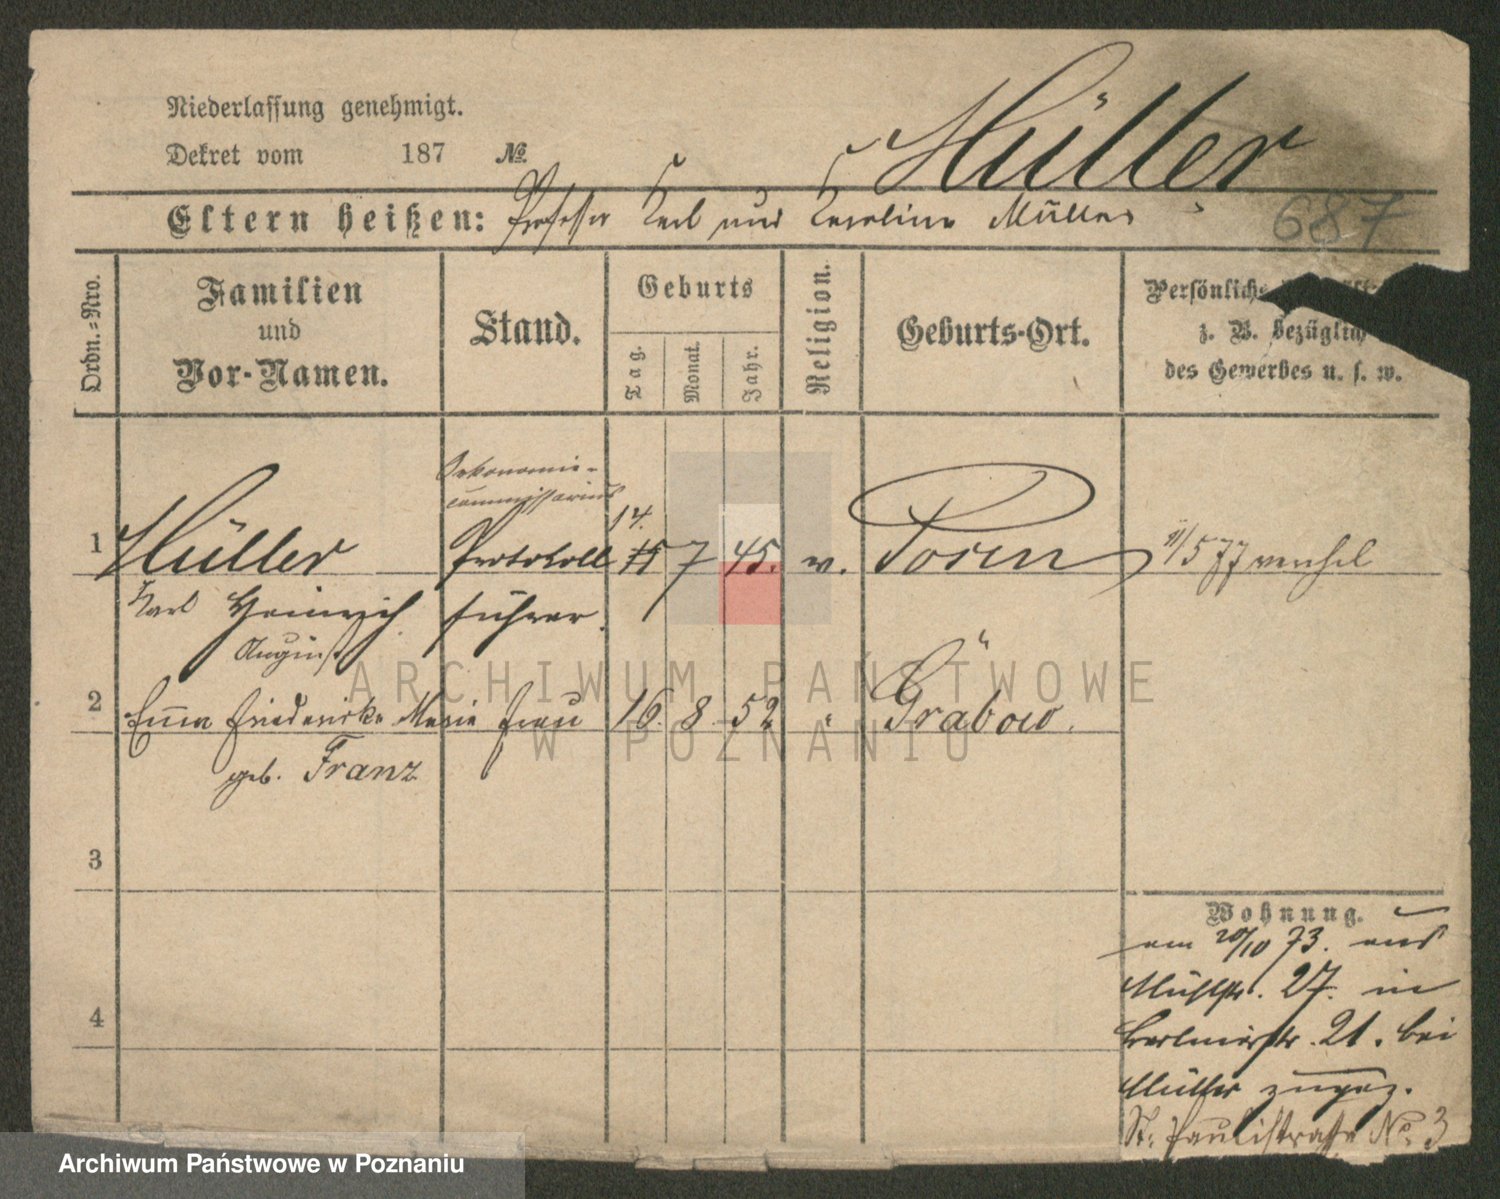 Niederlassung genehmigt.
Dekret vom 187 №
Müller
Eltern heißen: Professor Karl und Karoline Müller
687
Ordn.=Nro.
Familien
und
Vor-Namen.
Stand.
Geburts
Tag.
Monat.
Jahr.
Religion.
Geburts-Ort.
Persönliche
z. B. bezüglich
des Gewerbes u. s. w.
Oekonomie-
commissarius
14.
1 Müller Protokoll 15 7 45. ev. Posen 5 77
Karl Heinrich führer.
August
2 Emma Friedericke Marie Frau 16. 8 52 " Grabow.
geb. Franz
3
4
Wohnung.
am 20/10 73. aus
Mühlstr. 27. in
Berlinerstr. 21. bei
Müller zugez.
St. Paulistraße No. 3
ARCHIWUM PAŃSTWOWE
W POZNANIU
Archiwum Państwowe w Poznaniu